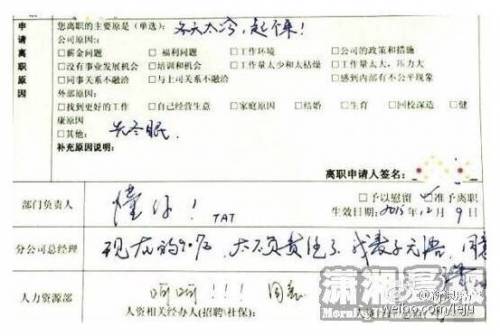 申请离职原因
您离职的主要原是(单选): 冬天太冷,起不来!
公司原因:
□薪金问题 □福利问题 □工作环境 □公司的政策和措施
□没有事业发展机会 □培训和机会 □工作量太少和太枯燥 □工作量太大,压力大
□同事关系不融洽 □与上司关系不融洽 □感到内部有不公平现象
外部原因:
□找到更好的工作 □自己经营生意 □家庭原因 □结婚 □生育 □回校深造 □健
康原因
□其他: 去冬眠.
补充原因说明:
离职申请人签名:
部门负责人 懂你! TAT □予以慰留 准予离职
生效日期:2015年12月9日
分公司总经理 现在的90后,太不负责任了,我妻子元语,同意
人力资源部 呵呵!!! 同意
人资相关经办人(招聘\社保):
潇湘晨报
weibo.com/leju